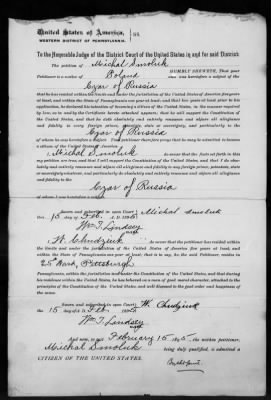 United States of America,
WESTERN DISTRICT OF PENNSYLVANIA. } ss.
To the Honorable Judge of the District Court of the United States in and for said District:
The petition of Michal Smoluk
HUMBLY SHEWETH, That your
Petitioner is a native of Poland and was heretofore a subject of the
Czar of Russia
that he has resided within the limits and under the jurisdiction of the United States of America
and within the State of Pennsylvania one year at least; and that two years at least prior to his
application, he declared his intention of becoming a citizen of the United States, in the manner required
by law, as is by the Certificate hereto attached appears; that he will support the Constitution
of the United States, and that he doth absolutely and entirely renounce and abjure all allegiance
and fidelity to every foreign power, potentate, state or sovereignty, and particularly to the
Czar of Russia
of whom he was heretofore a subject. Your petitioner therefore prays that he may be admitted to become
a citizen of the States of America.
I, Michal Smoluk do swear that the facts set forth in this
my petition are true, and that I will support the Constitution of the United States, and that I do abso-
lutely and entirely renounce and abjure all allegiance and fidelity to any foreign prince, potentate, state
or sovereignty whatever, and particularly do absolutely and entirely renounce and abjure all allegiance
and fidelity to the
Czar of Russia
of whom I was heretofore a subject.
Sworn and subscribed in open Court
this 15 day of Feb. A. D. 1895 Michal Smoluk
Wm T. Lindsey
W. Chudziuk do swear that the petitioner has resided within the
limits and under the jurisdiction of the United States of America five years at least, and
within the State of Pennsylvania one year at least; that is to say, the said Petitioner, resides in
25 Ward, Pittsburgh
Pennsylvania, within the jurisdiction and under the Constitution of the United States, and that during
his residence within the has behaved as a man of good moral character, attached to the
principles of the Constitution of the United States, and well disposed to the good order and happiness of
the same.
Sworn and subscribed in open Court W. Chudziuk
this 15 day of Feb. 1895
Wm T. Lindsey
And now, to wit: February 15 1895, the within petitioner,
Michal Smoluk being duly qualified, is admitted a
CITIZEN OF THE UNITED STATES.
By the Court.